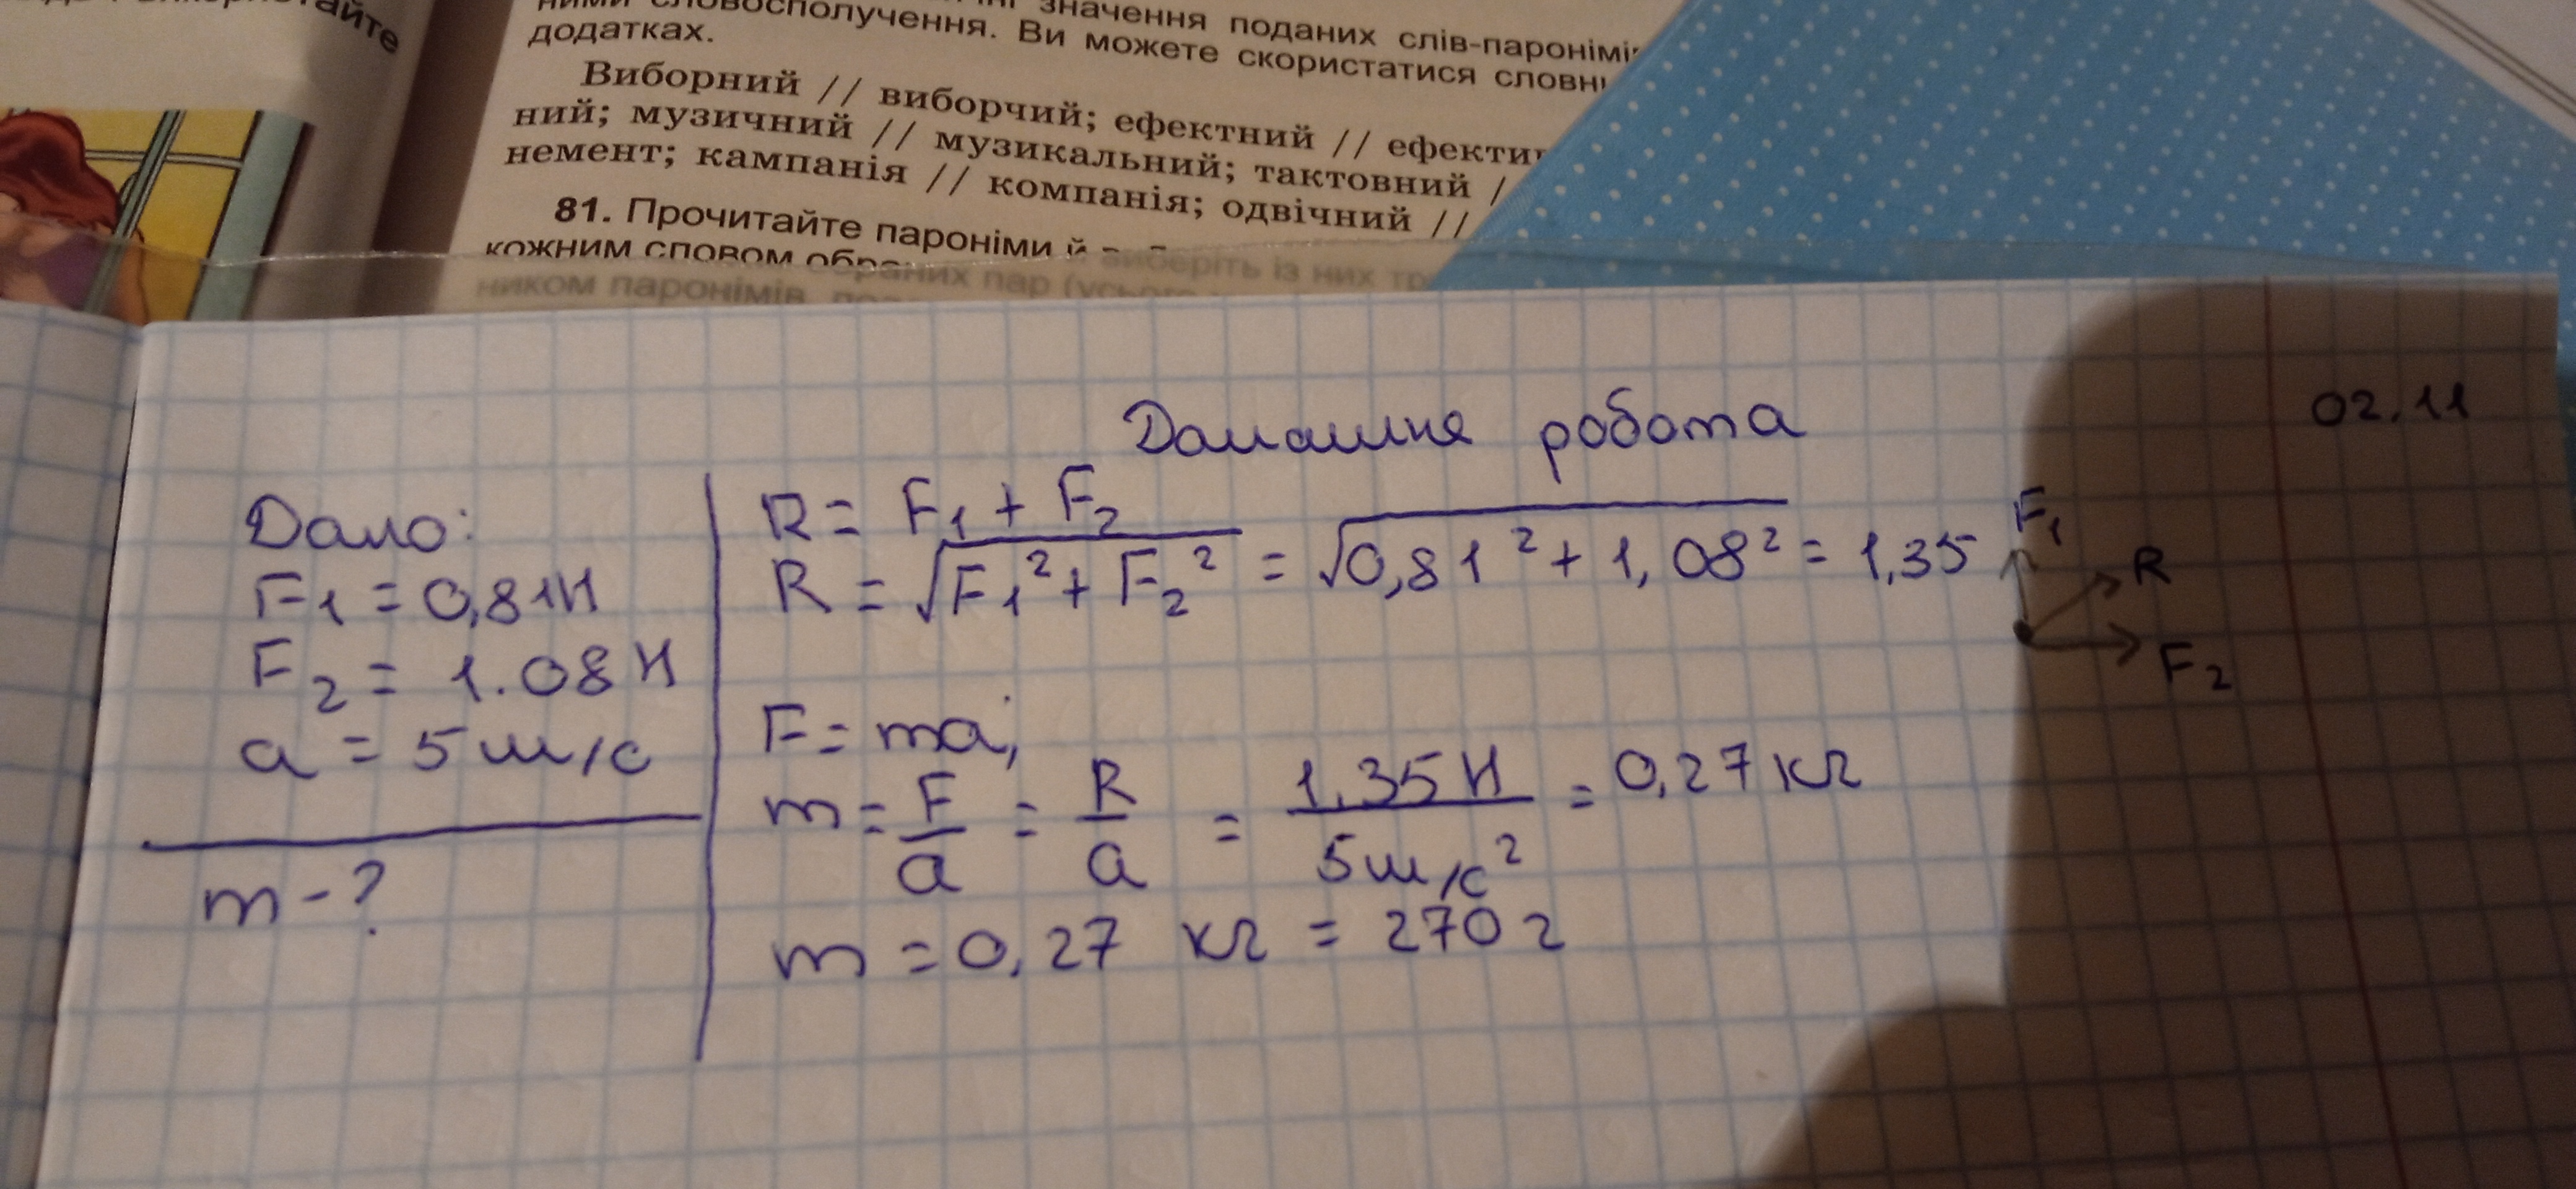 айте
значення поданих слів-паронімі
ними словосполучення. Ви можете скористатися словн
додатках.
Виборний // виборчий; ефектний // ефекти
ний; музичний // музикальний; тактовний /
немент; кампанія // компанія; одвічний //
81. Прочитайте пароніми й виберіть із них
кожним словом
ником паронімів
Домашня робота
02.11
Дано:
F₁ = 0,81Н
F₂ = 1.08 Н
a = 5 м/с
m - ?
R = F₁ + F₂
R = √F₁² + F₂² = √0,81² + 1,08² = 1,35
F = ma;
m = F/a = R/a = 1,35 Н/5 м/с² = 0,27 кг
m = 0,27 кг = 270 г
F₁
R
F₂